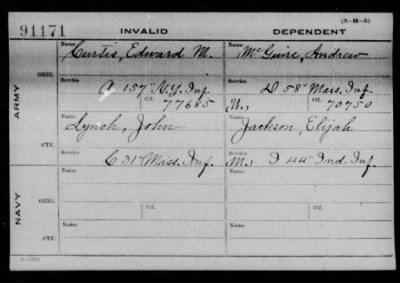 (3-14-5)
91171 INVALID DEPENDENT
Name Name
Curtis, Edward M. McGuire, Andrew
ORIG. Service Service
A 157" N.Y. Inf. D 58" Mass. Inf.
Ctf. 77685 M., Ctf. 70750
ARMY
Name Name
Lynch, John Jackson, Elijah
CTF. Service Service
C 31" Mass. Inf. M., I 44" Ind. Inf.
Name Name
ORIG. Ctf. Ctf.
NAVY
Name Name
CTF.